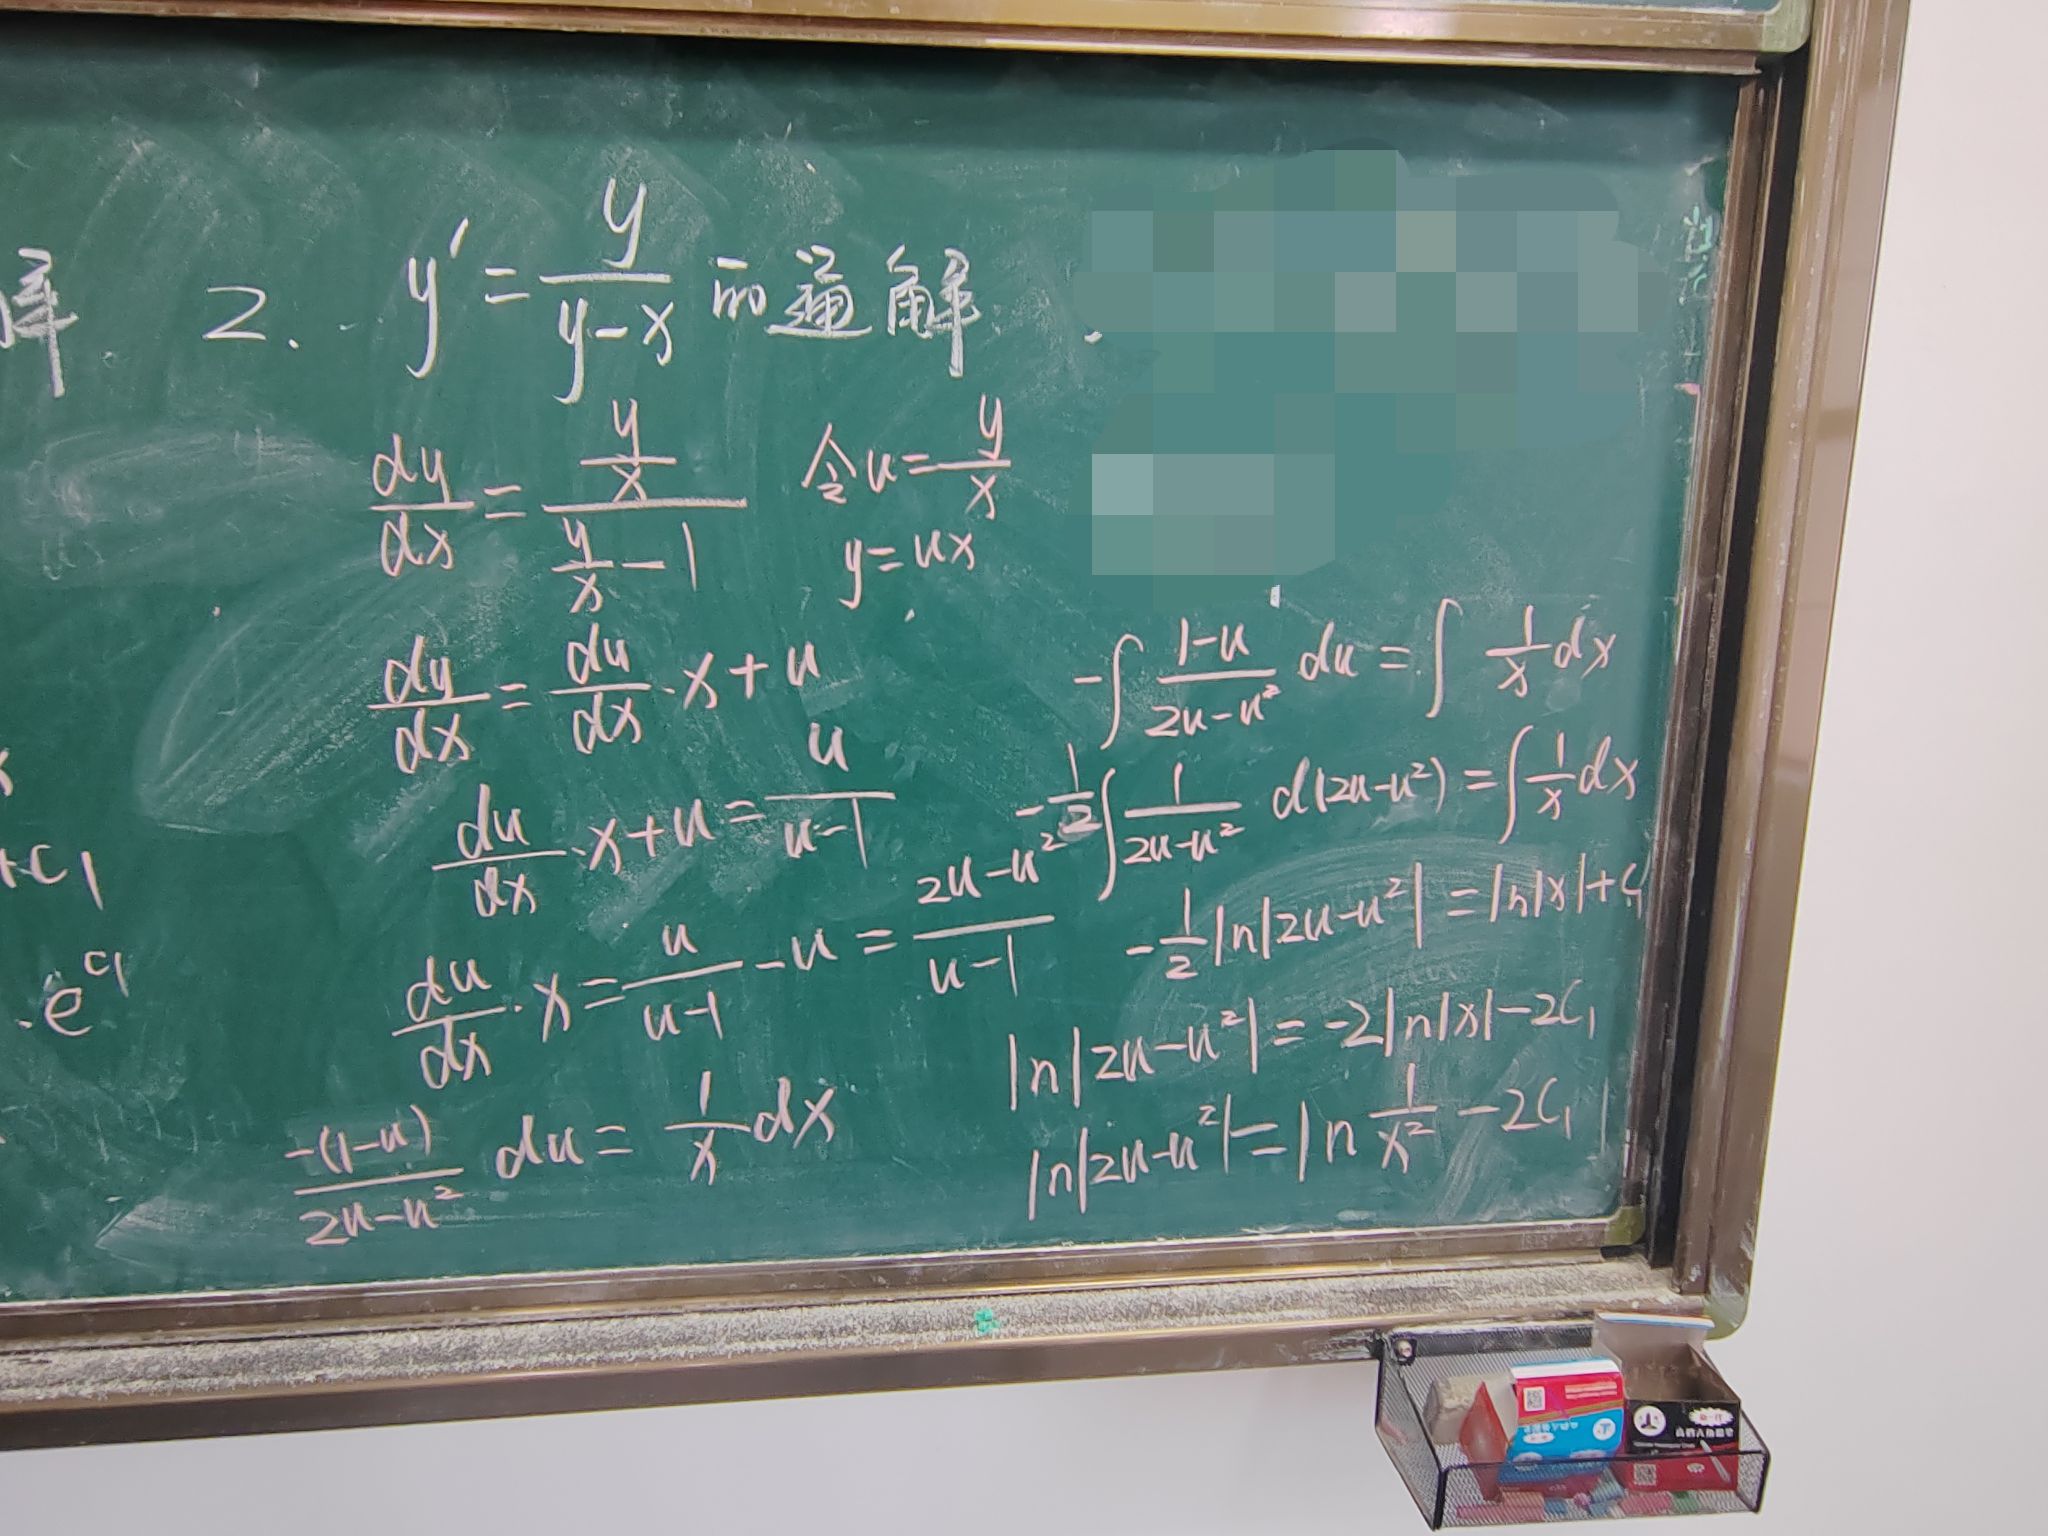 解
2. y' = y/(y-x) 的通解
dy/dx = (y/x)/(y/x - 1) 令 u = y/x
y = ux
dy/dx = du/dx · x + u
du/dx · x + u = u/(u-1)
du/dx · x = u/(u-1) - u = (2u-u²)/(u-1)
-(1-u)/(2u-u²) du = 1/x dx
-∫ (1-u)/(2u-u²) du = ∫ 1/x dx
-1/2 ∫ 1/(2u-u²) d(2u-u²) = ∫ 1/x dx
-1/2 ln|2u-u²| = ln|x| + C₁
ln|2u-u²| = -2ln|x| - 2C₁
ln|2u-u²| = ln 1/x² - 2C₁
+C₁
·e^C₁